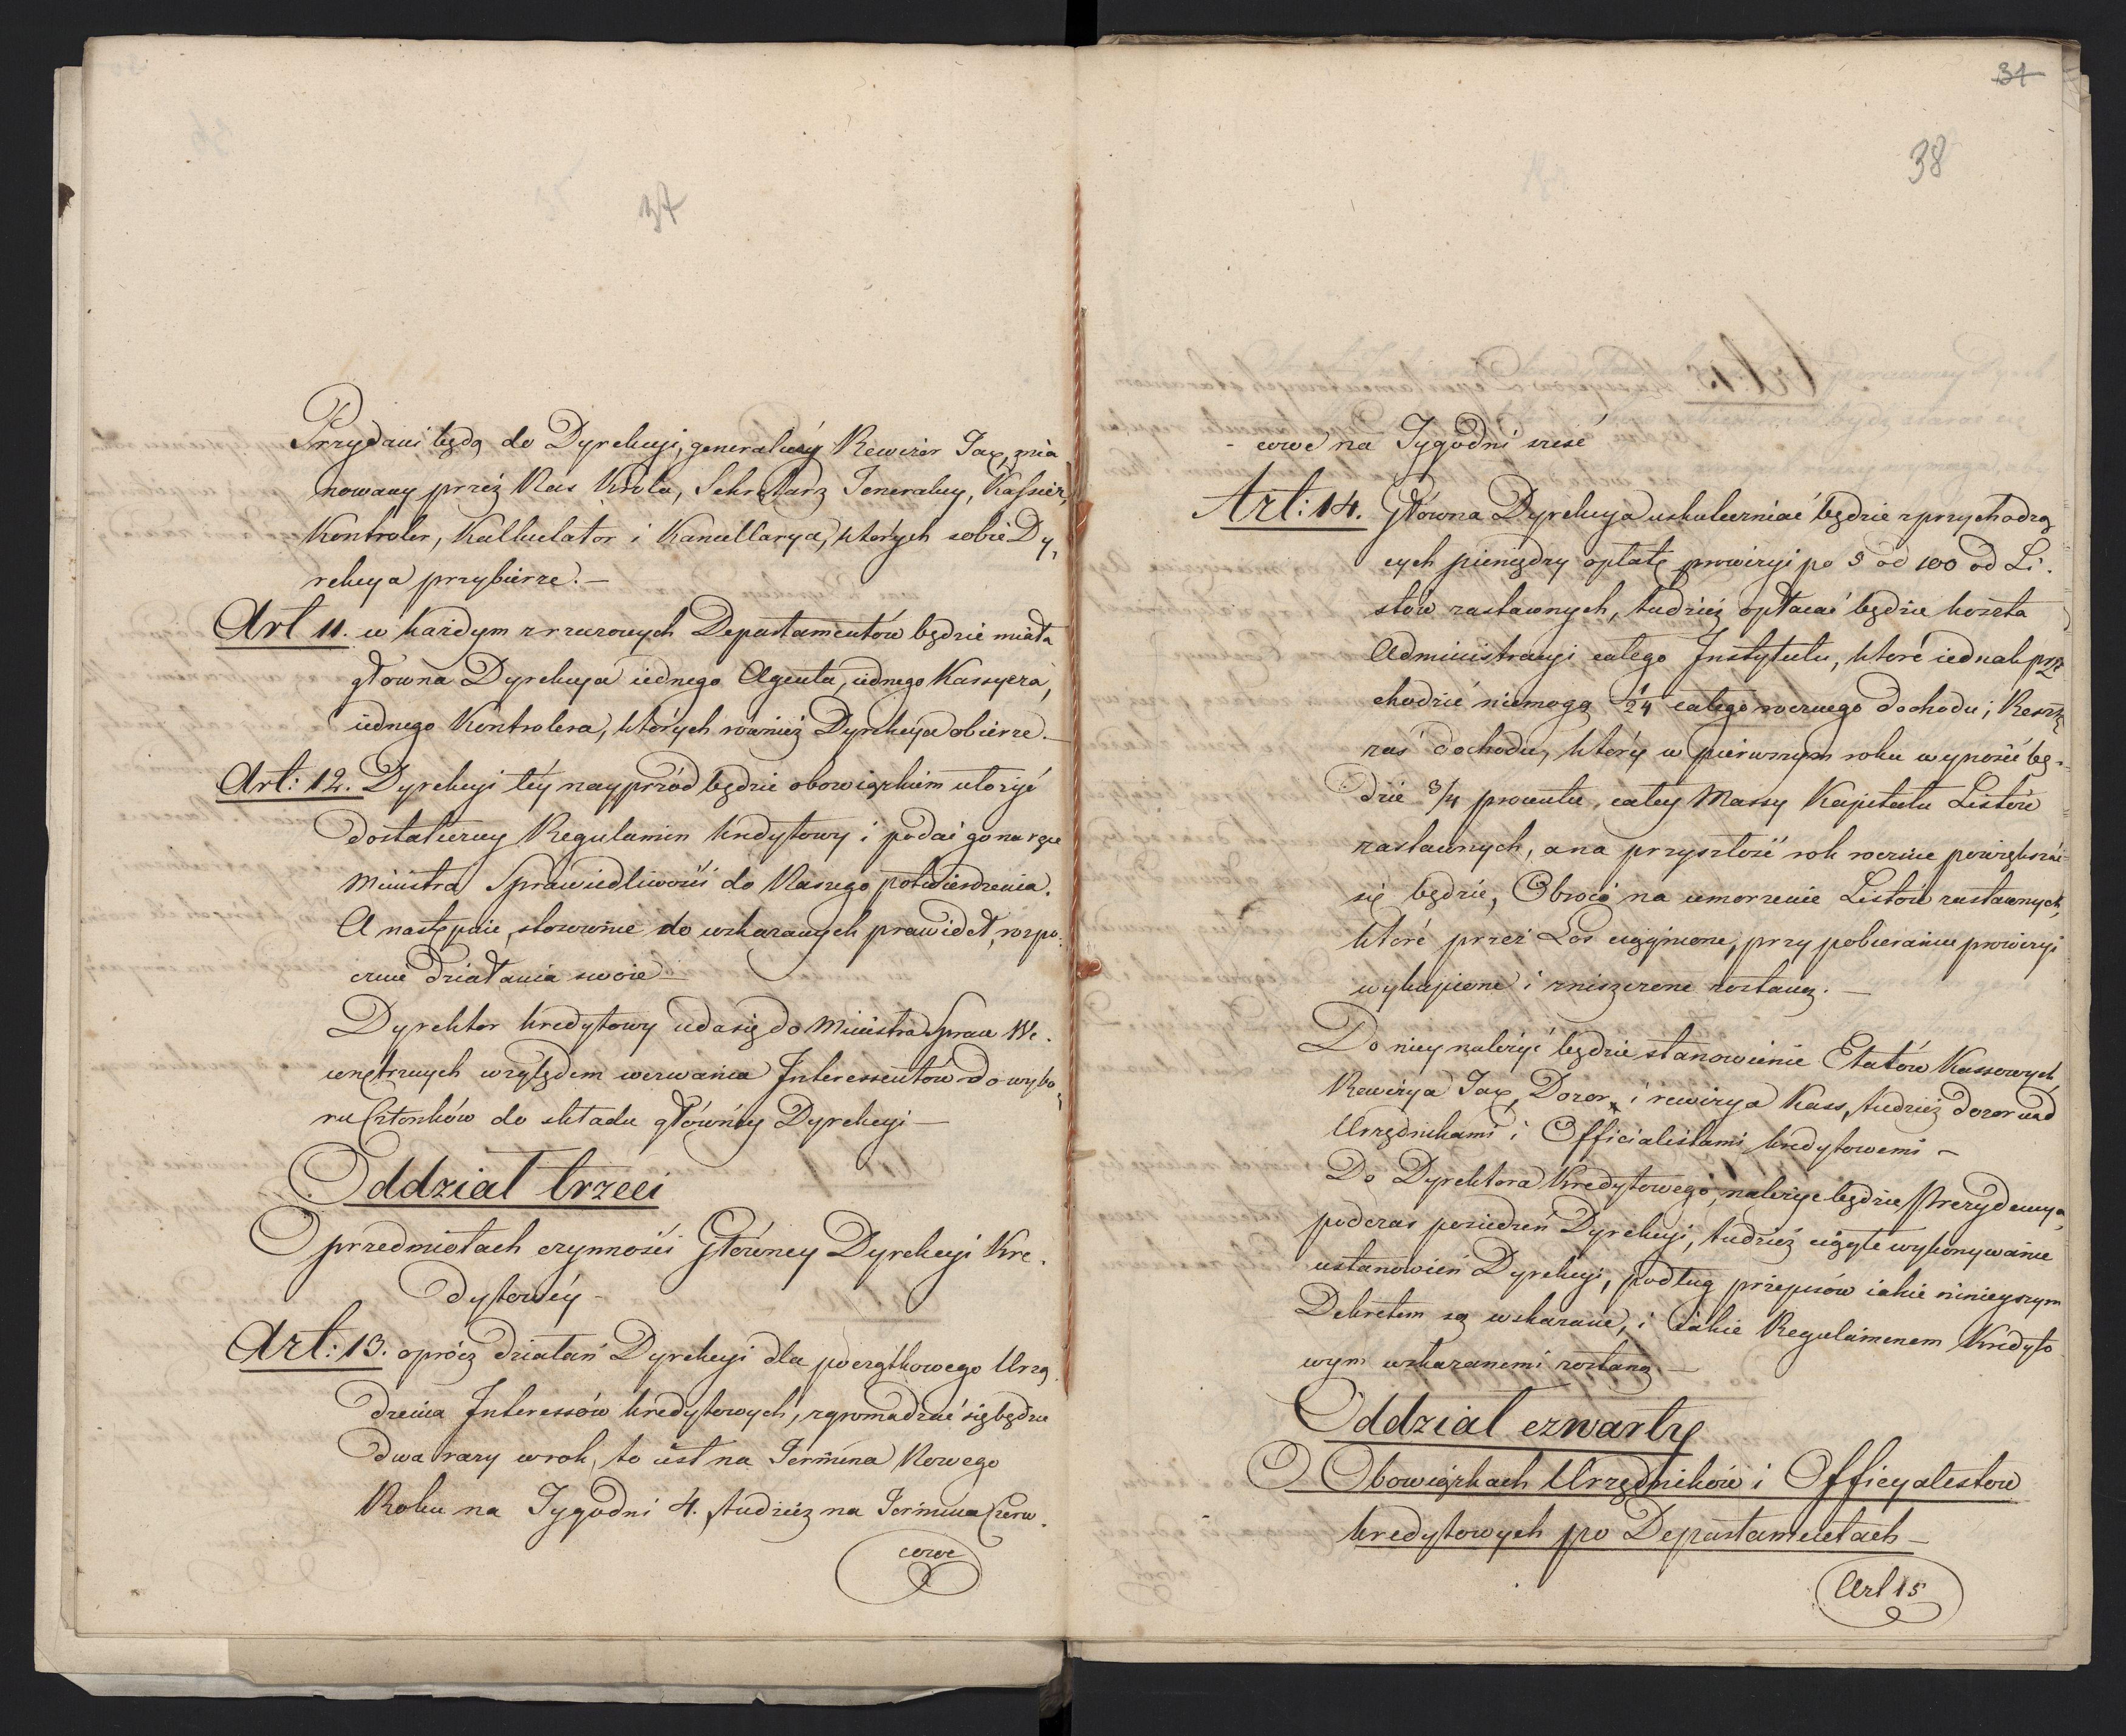 37
Przydani będą do Dyrekcyi, generalny Rewizor Tax, mia
nowany przéz Nas Króla, Sekretarz Jeneralny, Kassier,
Kontroler, Kalkulator i Kancellarya, których sobie Dy,
rekcya przybierze.—
Art 11. w każdym z rzeczonych Departamentów będzie miała
główna Dyrekcya iednego Agenta, iednego Kassyera,
iednego Kontrolera, których również Dyrekcya obierze.—
Art: 12. Dyrekcyi téy nayprzód będzie obowiązkiem ułożyć
dostateczny Regulamin kredytowy i podać go na ręce
Ministra Sprawiedliwości do Naszego potwierdzenia.
A następnie, stosownie do wskazanych prawideł, rozpo,
cznie działania swoie—
Dyrektor kredytowy uda się do Ministra Spraw We.
wnętrznych względem wezwania Interessentów do wybo,
ru Członków do składu główney Dyrekcyi—
Oddział trzeci
O przedmiotach czynności Główney Dyrekcyi Kre.
dytowéy—
Art: 13. oprócz działań Dyrekcyi dla początkowego Urzą
dzenia Interessów kredytowych, zgromadzać się będzie
dwa razy w rok, to iest na Termina Nowego
Roku na Tygodni 4. tudzież na Termina Czerw.
cowe
31
38
- cowe na Tygodni sześć
Art: 14. Główna Dyrekcya uskuteczniać będzie z przychodzą
cych pieniędzy opłatę prowizyi po 5 od 100 od Li.
stów zastawnych, tudzież opłacać będzie koszta
Administracyi całego Instytutu, które iednak prze
chodzić niemogą 1/24 całego rocznego dochodu; Resztę
zaś dochodu, który w pierwszym roku wynosić bę-
dzie 3/4 procentu, całey Massy Kapitału Listów
zastawnych, a na przyszłość rok rocznie powiększać
się będzie, Obroci na umorzenie Listów zastawnych,
które przez Los ciągnione, przy pobieraniu prowizyi
wykupione i zniszczone zostaną.—
Do niey należyć będzie stanowienie Etatów Kassowych
Rewizya Tax, Dozor, i rewizya Kass, tudzież dozor nad
Urzędnikami i Officialistami kredytowemi—
Do Dyrektora Kredytowego, należyć będzie Prezydencya,
podczas posiedzeń Dyrekcyi, tudzież ciągłe wykonywanie
ustanowień Dyrekcyi, podług przepisów iakie ninieyszym
Dekretem są wskazane, i iakie Regulamenem Kredyto
wym wskazanemi zostaną—
Oddział czwarty
O Obowiązkach Urzędników i Officyalistów
kredytowych po Departamentach—
Art 15